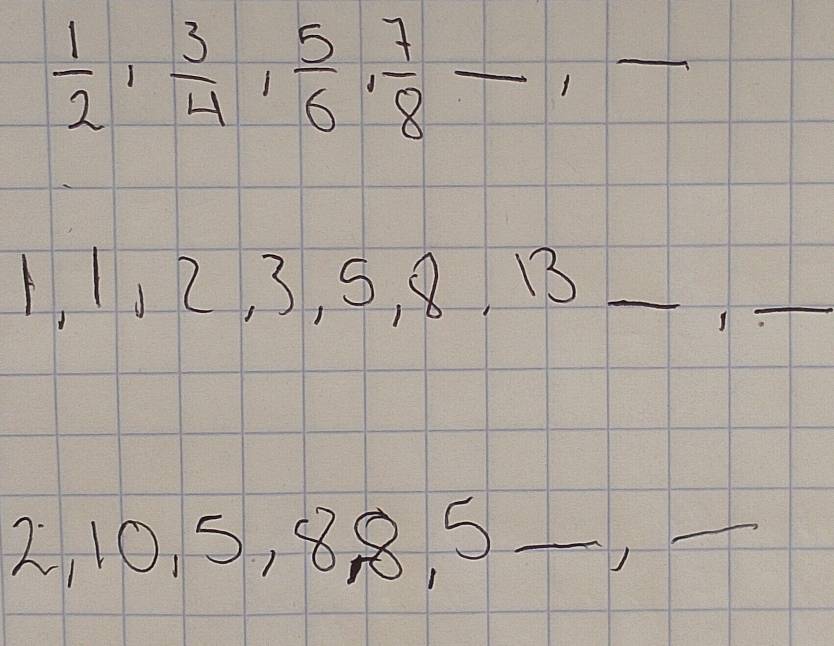 1/2, 3/4, 5/6, 7/8 __, __
1, 1, 2, 3, 5, 8, 13 __, __
2, 10, 5, 8, 8, 5 __, __